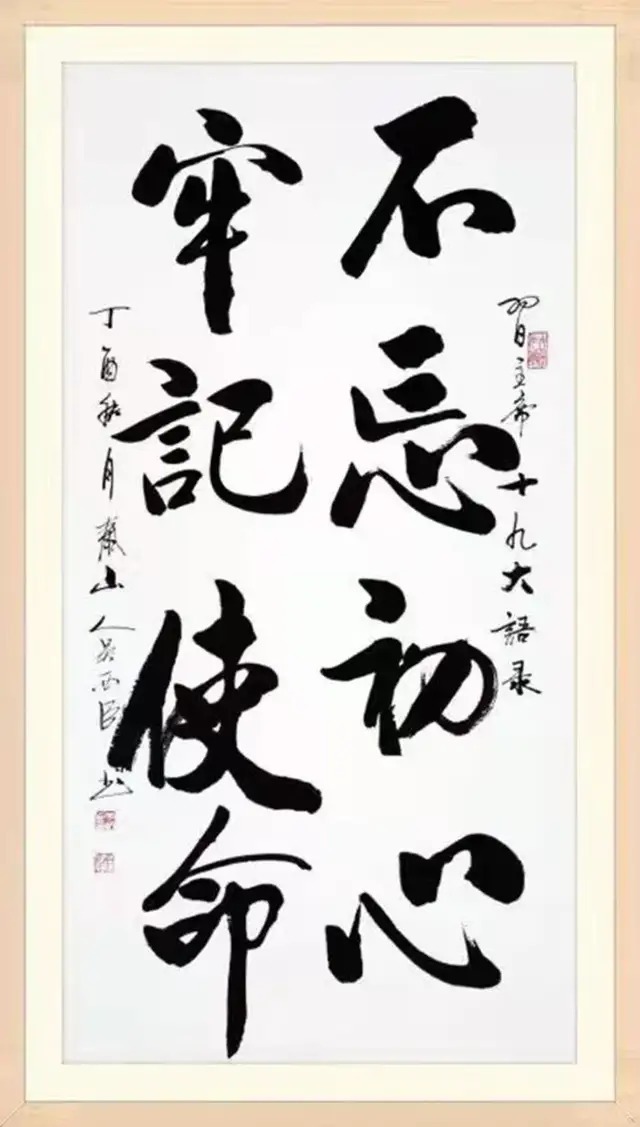 習主席十九大語录
不忘初心
牢記使命
丁酉秋月泰山人吳西臣書